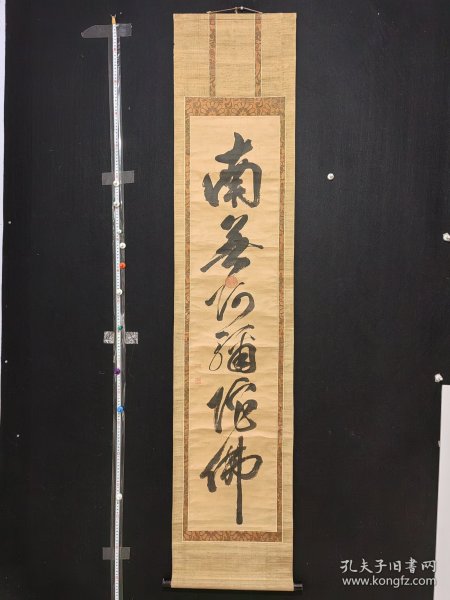 南無阿彌陀佛
孔夫子旧书网
www.kongfz.com